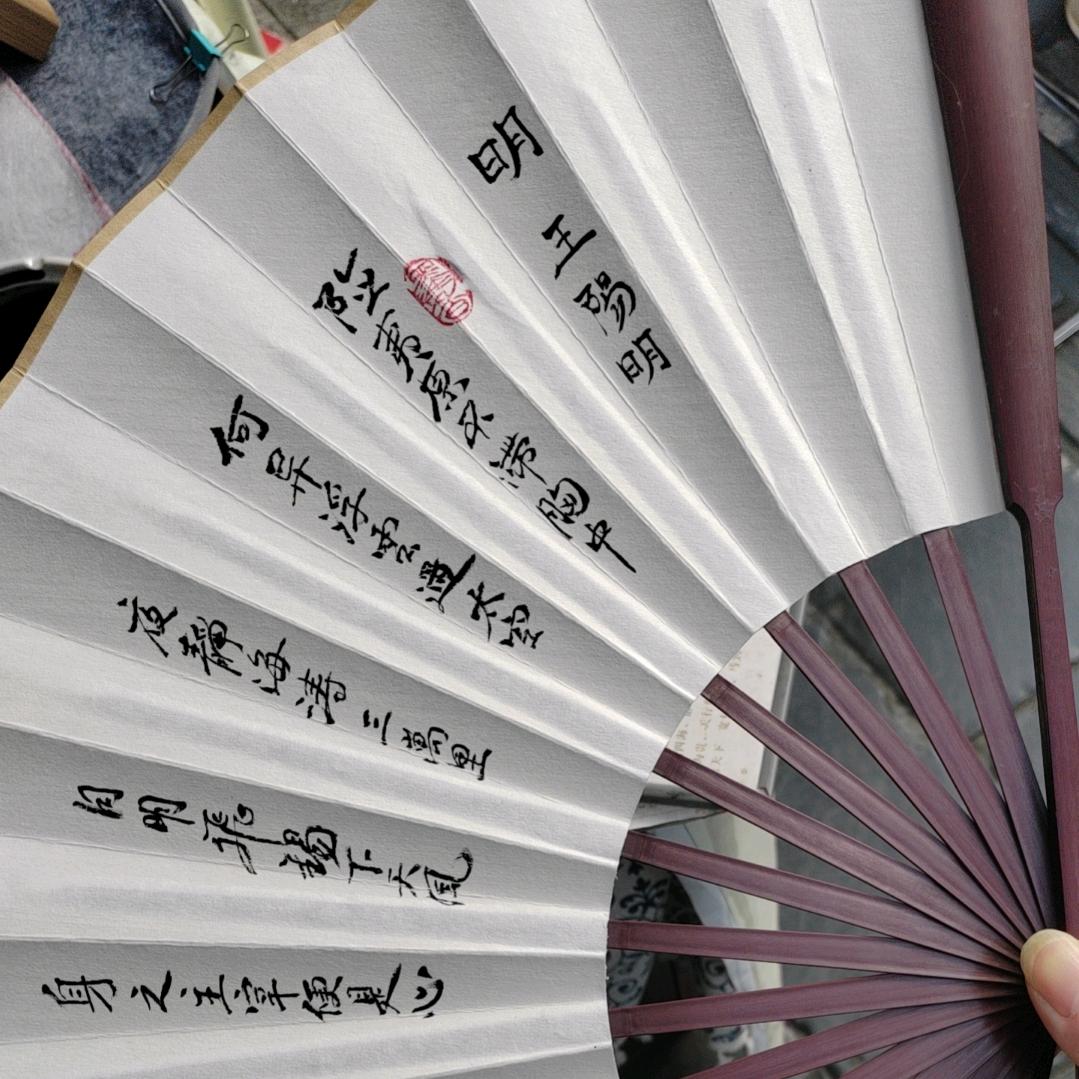 明 王陽明
險夷原不滯胸中
何异浮雲過太空
夜靜海涛三萬里
月明飛錫下天風
身之主宰便是心